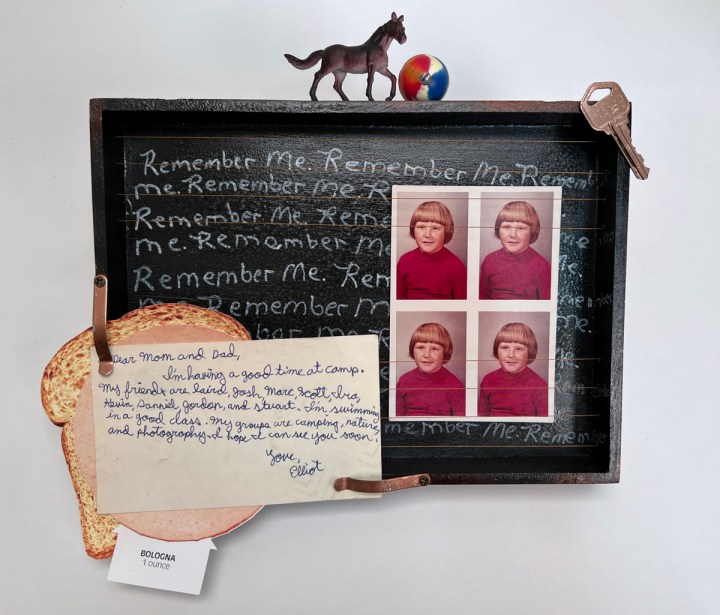 Remember Me. Remember Me. Remem
me. Remember Me. R
Remember Me. Rem
me. Remember Me
me
Remember Me. Rem
Me.
me. Remember M
me.
member Me. Remember
Dear Mom and Dad,
I'm having a good time at camp.
My friends are laird, Josh, Marc, Scott, Ira,
Kevin, Danniel, Gordon, and Stuart. I'm swimming
in a good class. My groups are camping, nature
and photography. I hope I can see you soon.
Love,
Elliot
BOLOGNA
1 ounce